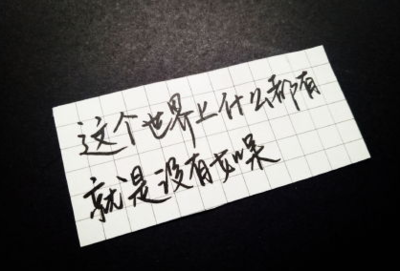 这个世界上什么都有
就是没有如果